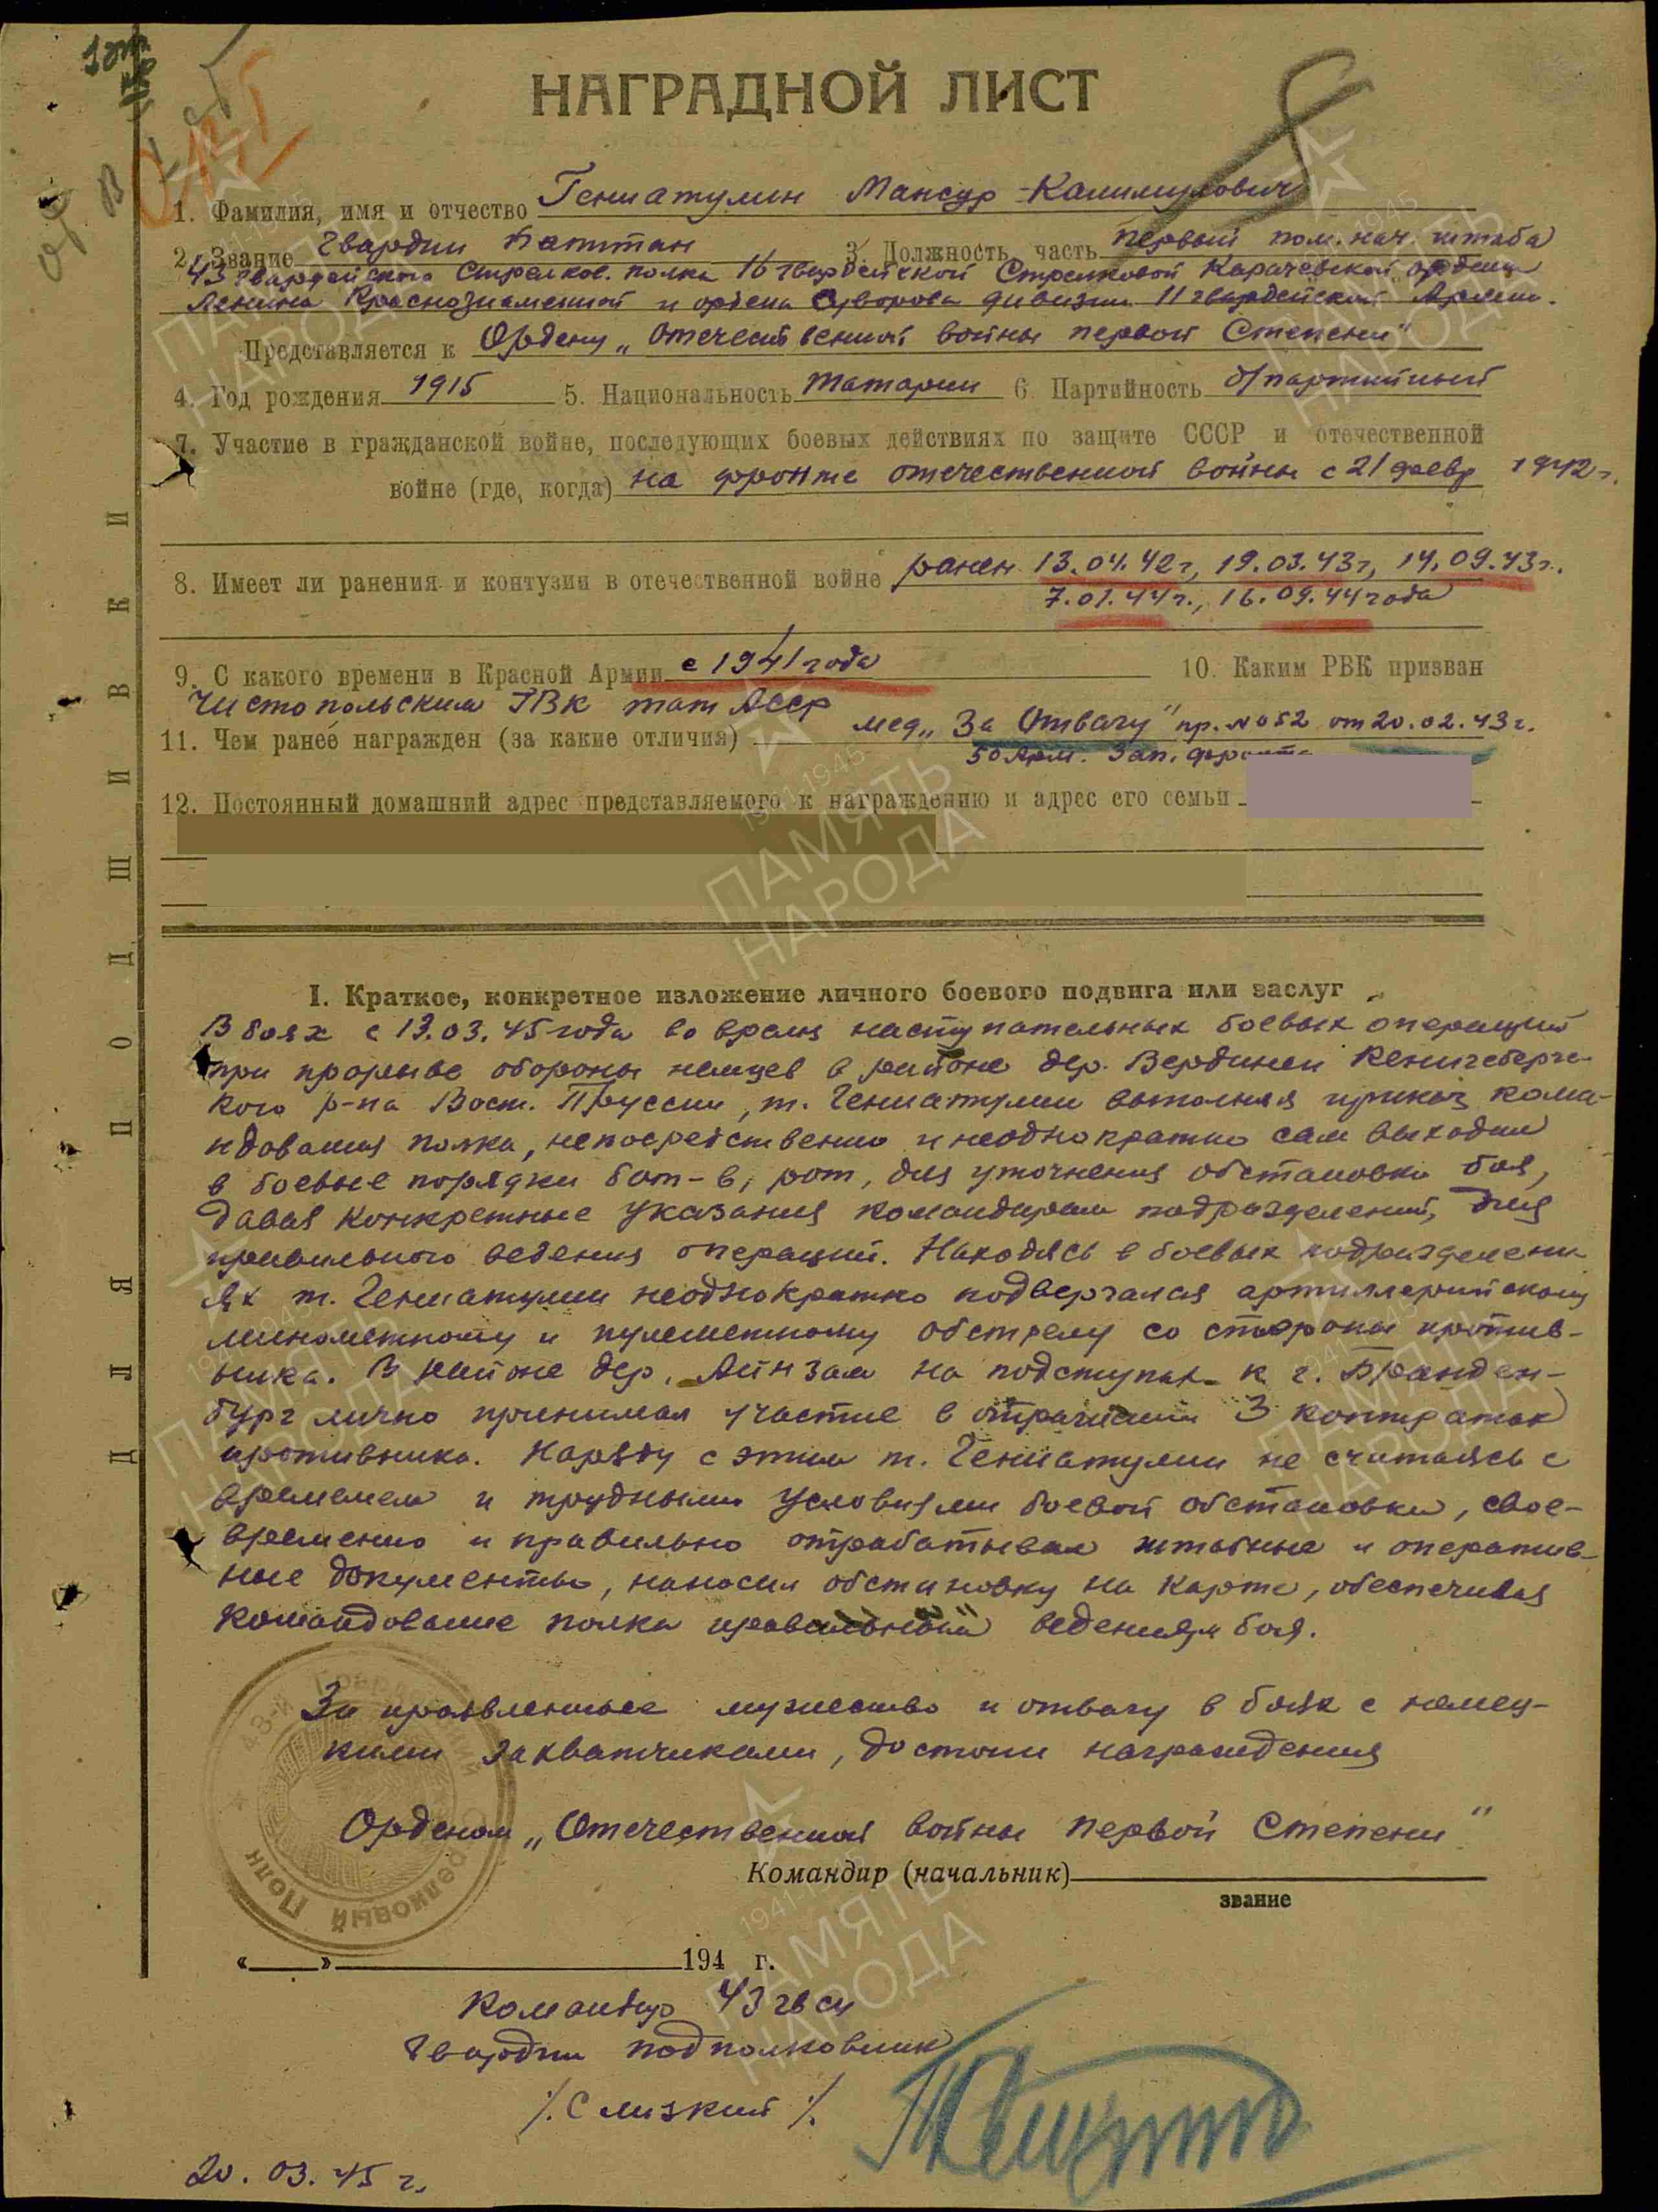 НАГРАДНОЙ ЛИСТ
1. Фамилия, имя и отчество Гениатулин Мансур Калимулович
2. Звание Гвардии Капитан 3. Должность, часть первый пом. нач. штаба
43 гвардейского Стрелков. полка 16 гвардейской Стрелковой Карачевской ордена
Ленина Краснознаменной и ордена Суворова дивизии 11 гвардейской Армии.
Представляется к Ордену „Отечественной войны первой Степени"
4. Год рождения 1915 5. Национальность татарин 6. Партийность б/партийный
7. Участие в гражданской войне, последующих боевых действиях по защите СССР и отечественной
войне (где, когда) на фронте отечественной войны с 21 февр 1942 г.
8. Имеет ли ранения и контузии в отечественной войне ранен 13.04.42 г, 19.03.43 г, 14.09.43 г.
7.01.44 г., 16.09.44 года
9. С какого времени в Красной Армии с 1941 года 10. Каким РВК призван
Чистопольским ГВК тат АССР
11. Чем ранее награжден (за какие отличия) мед „За Отвагу" пр. №052 от 20.02.43 г.
50 Арм. Зап. фронта
12. Постоянный домашний адрес представляемого к награждению и адрес его семьи
I. Краткое, конкретное изложение личного боевого подвига или заслуг
В боях с 13.03.45 года во время наступательных боевых операций
при прорыве обороны немцев в районе дер. Вердинен Кенигсбергс-
кого р-на Вост. Пруссии, т. Гениатулин выполняя приказ кома-
ндования полка, непосредственно и неоднократно сам выходил
в боевые порядки бат-в, рот, для уточнения обстановки боя,
давая конкретные указания командирам подразделений, для
правильного ведения операций. Находясь в боевых подразделени-
ях т. Гениатулин неоднократно подвергался артиллерийскому
минометному и пулеметному обстрелу со стороны против-
ника. В районе дер. Айнзам на подступах к г. Бранден-
бург лично принимал участие в отражении 3 контратак
противника. Наряду с этим т. Гениатулин не считаясь с
временем и трудными условиями боевой обстановки, свое-
временно и правильно отрабатывал штабные и оператив-
ные документы, наносил обстановку на карте, обеспечивая
командование полка правильным ведением боя.
За проявленные мужество и отвагу в боях с немец-
кими захватчиками, достоин награждения
Орденом „Отечественной войны первой Степени"
Командир (начальник)
звание
«___» 194 г.
Командир 43 гв сп
гвардии подполковник
/. Слизкий /.
20.03.45 г.
ДЛЯ ПОДШИВКИ
43-й Гвардейский Стрелковый Полк
ПАМЯТЬ НАРОДА
1941-1945